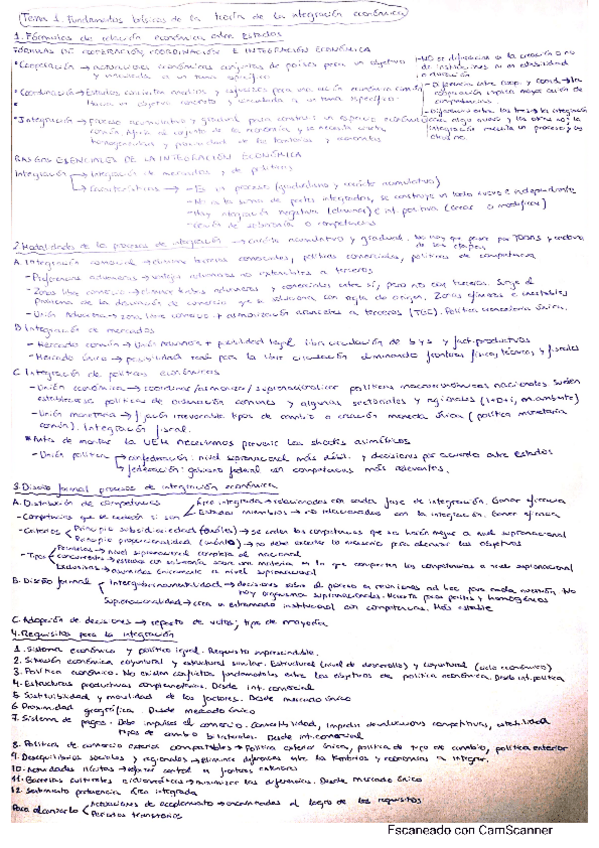 Tema 1. Fundamentos básicos de la teoría de la integración económica
1. Fórmulas de relación económica entre Estados
FÓRMULAS DE COOPERACIÓN, COORDINACIÓN E INTEGRACIÓN ECONÓMICA
*Cooperación → actuaciones económicas conjuntas de países para un objetivo
y vinculada a un tema específico.
*Coordinación → Estados concretan medios y esfuerzos para una acción común
hacia un objetivo concreto y vinculada a un tema específico.
*Integración → proceso acumulativo y gradual para construir un espacio económico
común. Afecta al conjunto de la economía y se necesita cierta
homogeneidad y proximidad de los territorios y
RASGOS ESENCIALES DE LA INTEGRACIÓN ECONÓMICA
Integración → Integración de mercados y de políticas
Características → - Es un proceso (gradualismo y carácter acumulativo)
- No es la suma de partes integradas, se construye un todo nuevo e independiente
- Hay integración negativa (eliminar) e int. positiva (crear o modificar)
- Cesión de soberanía o competencias
2. Modalidades de los procesos de integración → carácter acumulativo y gradual. No hay que pasar por TODAS
A. Integración comercial → elimina barreras comerciales, políticas comerciales, políticas de competencia
- Preferencias aduaneras → ventajas aduaneras no extensibles a terceros
- Zonas libre comercio → eliminar trabas aduaneras y comerciales entre sí, pero no con terceros. Surge el
problema de la desviación de comercio que se soluciona con regla de origen. Zonas efímeras e inestables
- Unión Aduanera → zona libre comercio + armonización aranceles a terceros (TEC). Política comercial única.
B. Integración de mercados
- Mercado común → Unión aduanera + posibilidad legal libre circulación de b y s y fact. productivos
- Mercado único → posibilidad real para la libre circulación eliminando fronteras físicas, técnicas y fiscales
C. Integración de políticas económicas
- Unión económica → coordinar/armonizar/supranacionalizar políticas macroeconómicas nacionales. Suelen
establecerse políticas de ordenación comunes y algunas sectoriales y regionales (I+D+i, m.ambiente)
- Unión monetaria → fijación irrevocable tipos de cambio o creación moneda única (política monetaria
común). Integración fiscal.
*Antes de montar la UEM necesitamos prevenir los shocks asimétricos
- Unión política → confederación: nivel supranacional más débil y decisiones por acuerdo entre estados
federación: gobierno federal con competencias más relevantes.
3. Diseño formal procesos de integración económica
A. Distribución de competencias
Área integrada → relacionadas con cada fase de integración. Ganar eficiencia
Estados miembros → no relacionadas con la integración. Ganar eficacia
- Competencias que se cederán si son
- Criterios
Principio subsidiariedad (cuáles) → se ceden las competencias que se harán mejor a nivel supranacional
Principio proporcionalidad (cuánto) → no debe exceder lo necesario para alcanzar los objetivos
- Tipos
→ nivel supranacional completa el nacional
→ estados con soberanía sobre una materia en la que comparten las competencias a nivel supranacional
Exclusivas → asumidas únicamente a nivel supranacional
B. Diseño formal
Intergubernamentalidad → decisiones sobre el proceso a reuniones ad hoc para cada cuestión. No
hay organismos supranacionales. Necesita pocos países y homogéneos
Supranacionalidad → crea un entramado institucional con competencias. Más estable
C. Adopción de decisiones → reparto de votos; tipo de mayoría
4. Requisitos para la integración
1. Sistema económico y político igual. Requisito imprescindible.
2. Situación económica coyuntural y estructural similar. Estructural (nivel de desarrollo) y coyuntural (ciclo económico)
3. Política económica. No existan conflictos fundamentales entre los objetivos de política económica. Desde int. política
4. Estructuras productivas complementarias. Desde int. comercial
5. Sustituibilidad y movilidad de los factores. Desde mercado único
6. Proximidad geográfica. Desde mercado único
7. Sistema de pagos. Debe impulsar el comercio. Convertibilidad, impedir devaluaciones competitivas, estabilidad
tipos de cambio bilaterales. Desde int. comercial
8. Políticas de comercio exterior compatibles → Política exterior única, política de tipo de cambio, política exterior
9. Desequilibrios sociales y regionales → eliminar diferencias entre los territorios y economías a integrar.
10. Actividades ilícitas → reforzar control en fronteras exteriores
11. Barreras culturales e idiomáticas → minimizar las diferencias. Desde mercado único
12. Sentimiento pertenencia área integrada
Para alcanzarlo
Actuaciones de acoplamiento → encaminadas al logro de los requisitos
Períodos transitorios
Escaneado con CamScanner